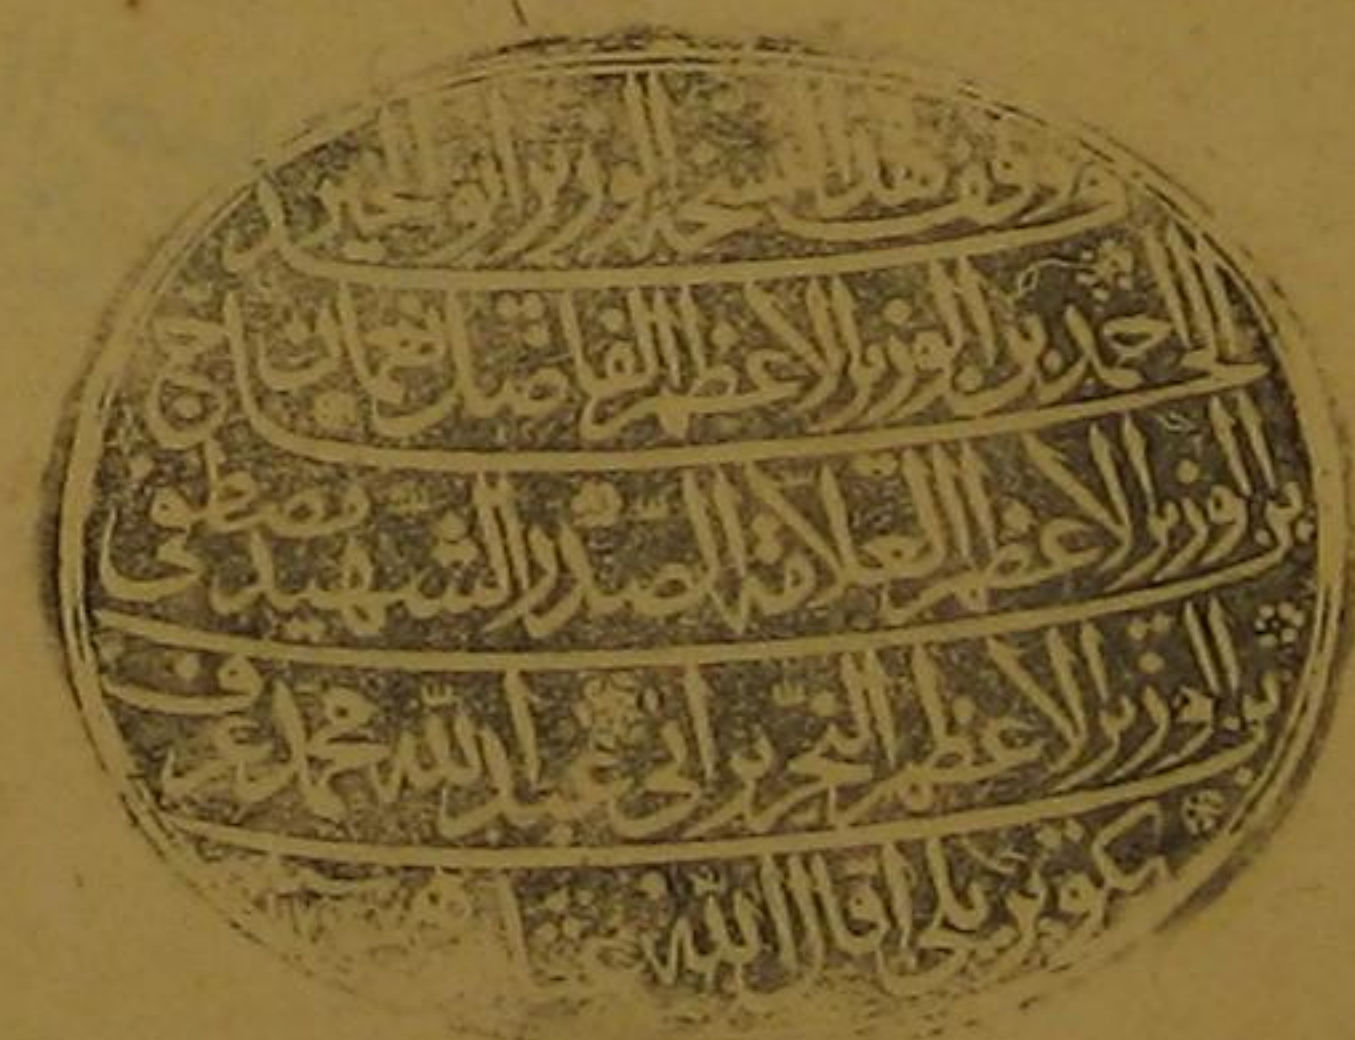 وقف هذا النسخة الوزير أبو الخير
الحاج احمد بن الوزير الاعظم الفاضل نعمان
بن الوزير الاعظم العلامة الصدر الشهيد مصطفى
بن الوزير الاعظم النحرير ابى عبد الله محمد عرف
بكوپريلى اقال الله